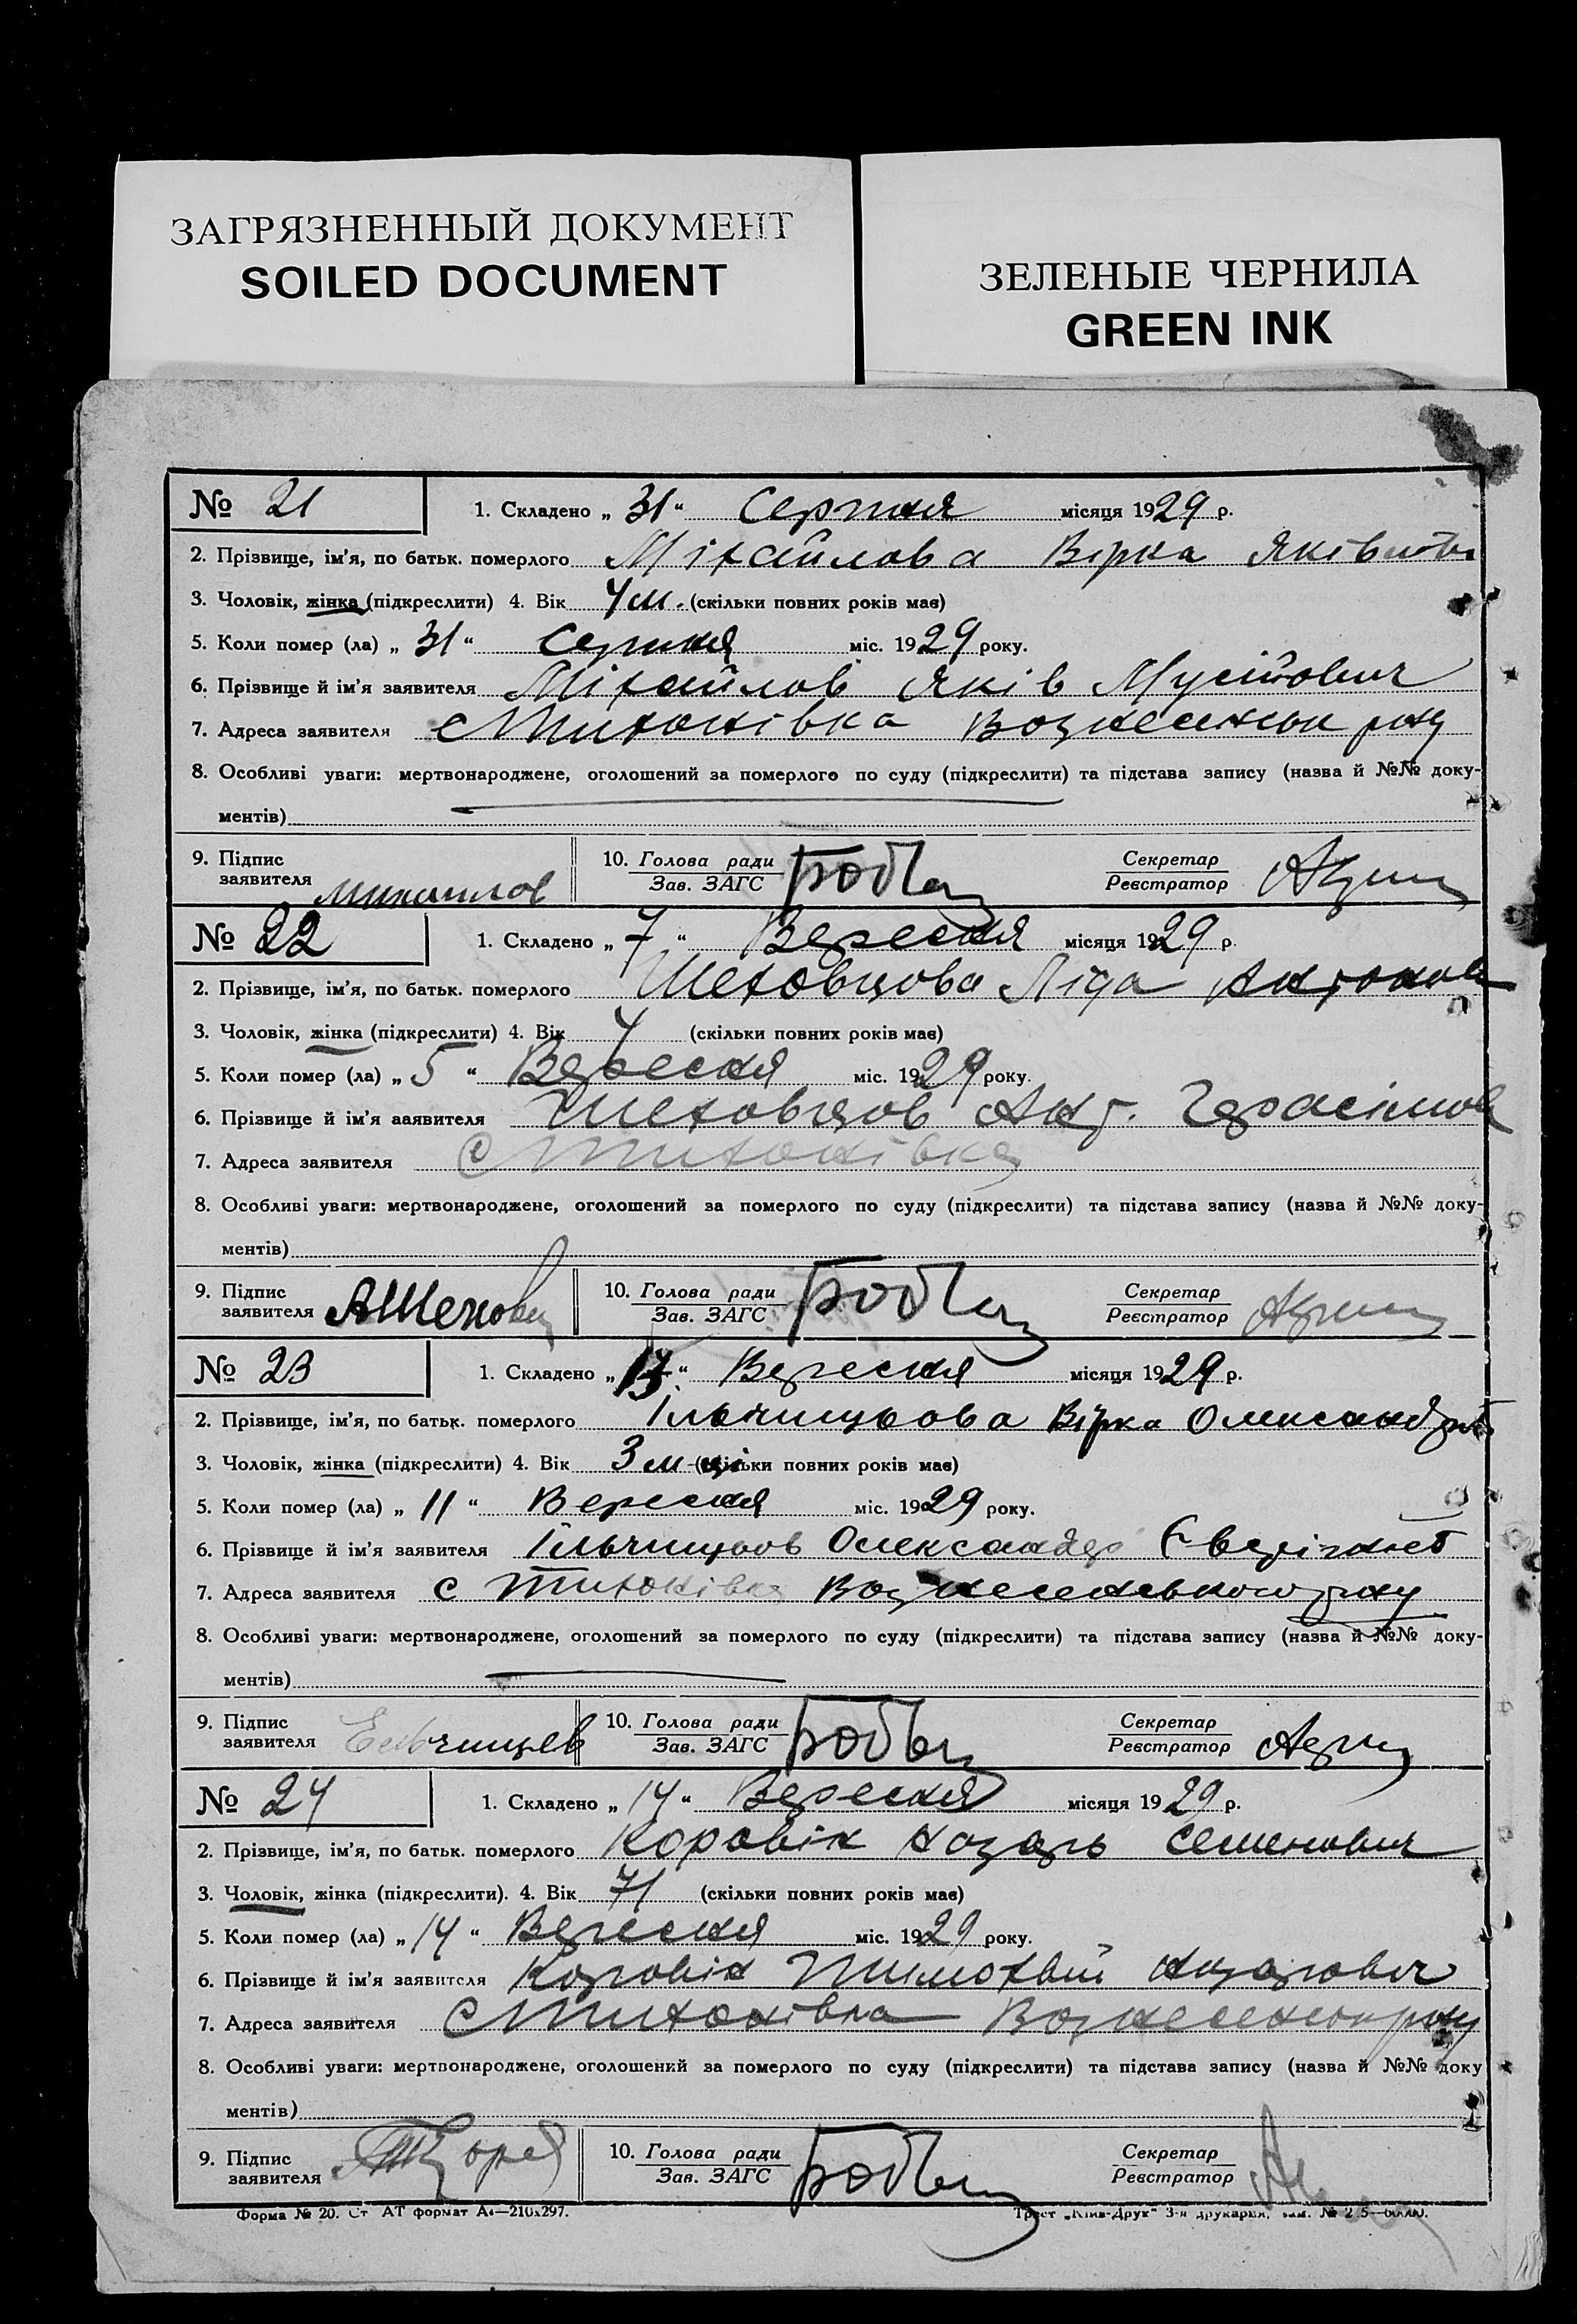 ЗАГРЯЗНЕННЫЙ ДОКУМЕНТ
SOILED DOCUMENT
ЗЕЛЕНЫЕ ЧЕРНИЛА
GREEN INK
№ 21 1. Складено „31“ Серпня місяця 1929 р.
2. Прізвище, ім'я, по батьк. померлого Міхайлова Вірка Яківновн
3. Чоловік, жінка (підкреслити) 4. Вік 4 м. (скільки повних років має)
5. Коли помер (ла) „31“ Серпня міс. 1929 року.
6. Прізвище й ім'я заявителя Міхайлов Яків Мусійович
7. Адреса заявителя с Тихонівка Вознесенськ р-ну
8. Особливі уваги: мертвонароджене, оголошений за померлого по суду (підкреслити) та підстава запису (назва й №№ доку-
ментів)
9. Підпис заявителя Михаилов 10. Голова ради Зав. ЗАГС Секретар Реєстратор
№ 22 1. Складено „7“ Вересня місяця 1929 р.
2. Прізвище, ім'я, по батьк. померлого Шеховцова Ліда Антонов
3. Чоловік, жінка (підкреслити) 4. Вік 4 (скільки повних років має)
5. Коли помер (ла) „5“ Вересня міс. 1929 року.
6. Прізвище й ім'я заявителя Шеховцов Ант. Герасімов
7. Адреса заявителя с Тихонівка
8. Особливі уваги: мертвонароджене, оголошений за померлого по суду (підкреслити) та підстава запису (назва й №№ доку-
ментів)
9. Підпис заявителя АШехов 10. Голова ради Зав. ЗАГС Секретар Реєстратор
№ 23 1. Складено „ “ Вересня місяця 1929 р.
2. Прізвище, ім'я, по батьк. померлого Ільчицьова Вірка Олександр
3. Чоловік, жінка (підкреслити) 4. Вік 3 м-ці (скільки повних років має)
5. Коли помер (ла) „11“ Вересня міс. 1929 року.
6. Прізвище й ім'я заявителя Ільчицьов Олександр
7. Адреса заявителя с Тихонівка Вознесенського р-ну
8. Особливі уваги: мертвонароджене, оголошений за померлого по суду (підкреслити) та підстава запису (назва й №№ доку-
ментів)
9. Підпис заявителя Ельчищев 10. Голова ради Зав. ЗАГС Секретар Реєстратор
№ 24 1. Складено „14“ Вересня місяця 1929 р.
2. Прізвище, ім'я, по батьк. померлого Коровін Назарь Семенович
3. Чоловік, жінка (підкреслити). 4. Вік 71 (скільки повних років має)
5. Коли помер (ла) „14“ Вересня міс. 1929 року.
6. Прізвище й ім'я заявителя Коровін Тимохвій Назарович
7. Адреса заявителя с Тихонівка Вознесенськ р-ну
8. Особливі уваги: мертвонароджене, оголошений за померлого по суду (підкреслити) та підстава запису (назва й №№ доку
ментів)
9. Підпис заявителя 10. Голова ради Зав. ЗАГС Секретар Реєстратор
Форма № 20. Ст АТ формат А4—210х297. Трест „Київ-Друк“ 3-я друкарня,